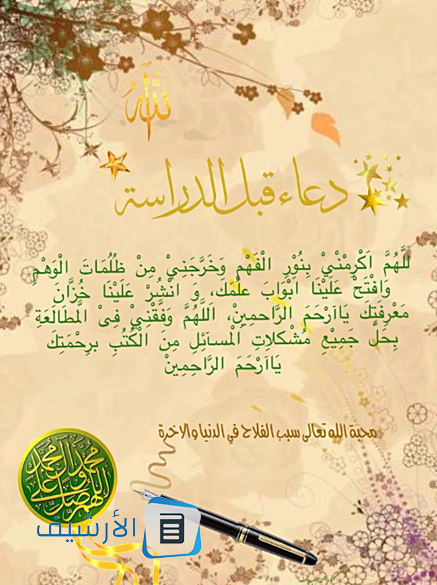 الله
دعاء قبل الدراسة
للَّهُمَّ اَكْرِمْنيْ بِنُوْرِ الْفَهْمِ وَخَرِّجَنِيْ مِنْ ظُلُمَاتَ الْوَهْمِ
وَافْتَحْ عَلَيْنَا اَبْوَابَ عِلْمَكَ، وَ انْشُرْ عَلَيْنَا خُزَّانَ
مَعْرِفَتِكَ يَااَرْحَمَ الرَّاحِمِيْنَ، اَللَّهُمَّ وَفِّقْنِيْ فِىْ المُطَالَعَةِ
بِحَلِّ جَمِيْعِ مُشْكِلاتِ اَلْمسَائلِ مِنَ الْكُتُبِ برحْمَتِكَ
يَااَرْحَمَ الرَّاحِمِيْنْ
محبة الله تعالى سبب الفلاح في الدنيا والاخرة
اللهم صل على محمد وآل محمد
الأرشيف